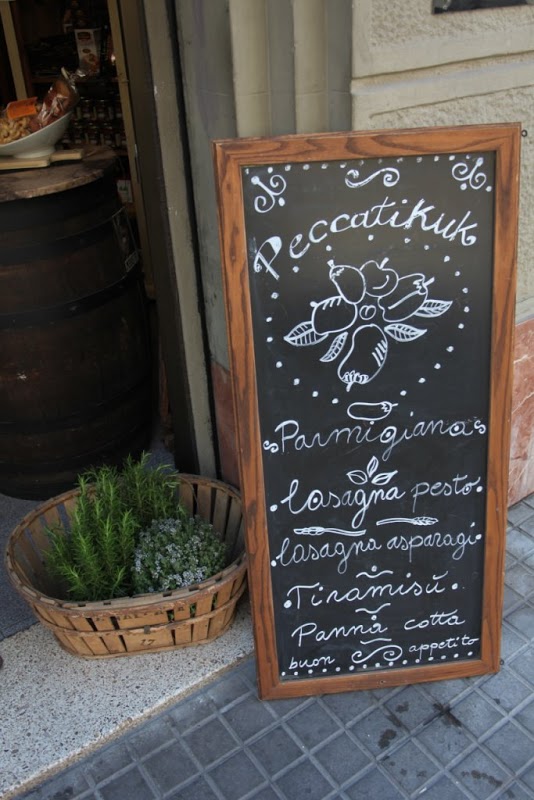 Peccatikuk
Parmigiana
lasagna pesto
lasagna asparagi
Tiramisú
Panna cotta
buon appetito